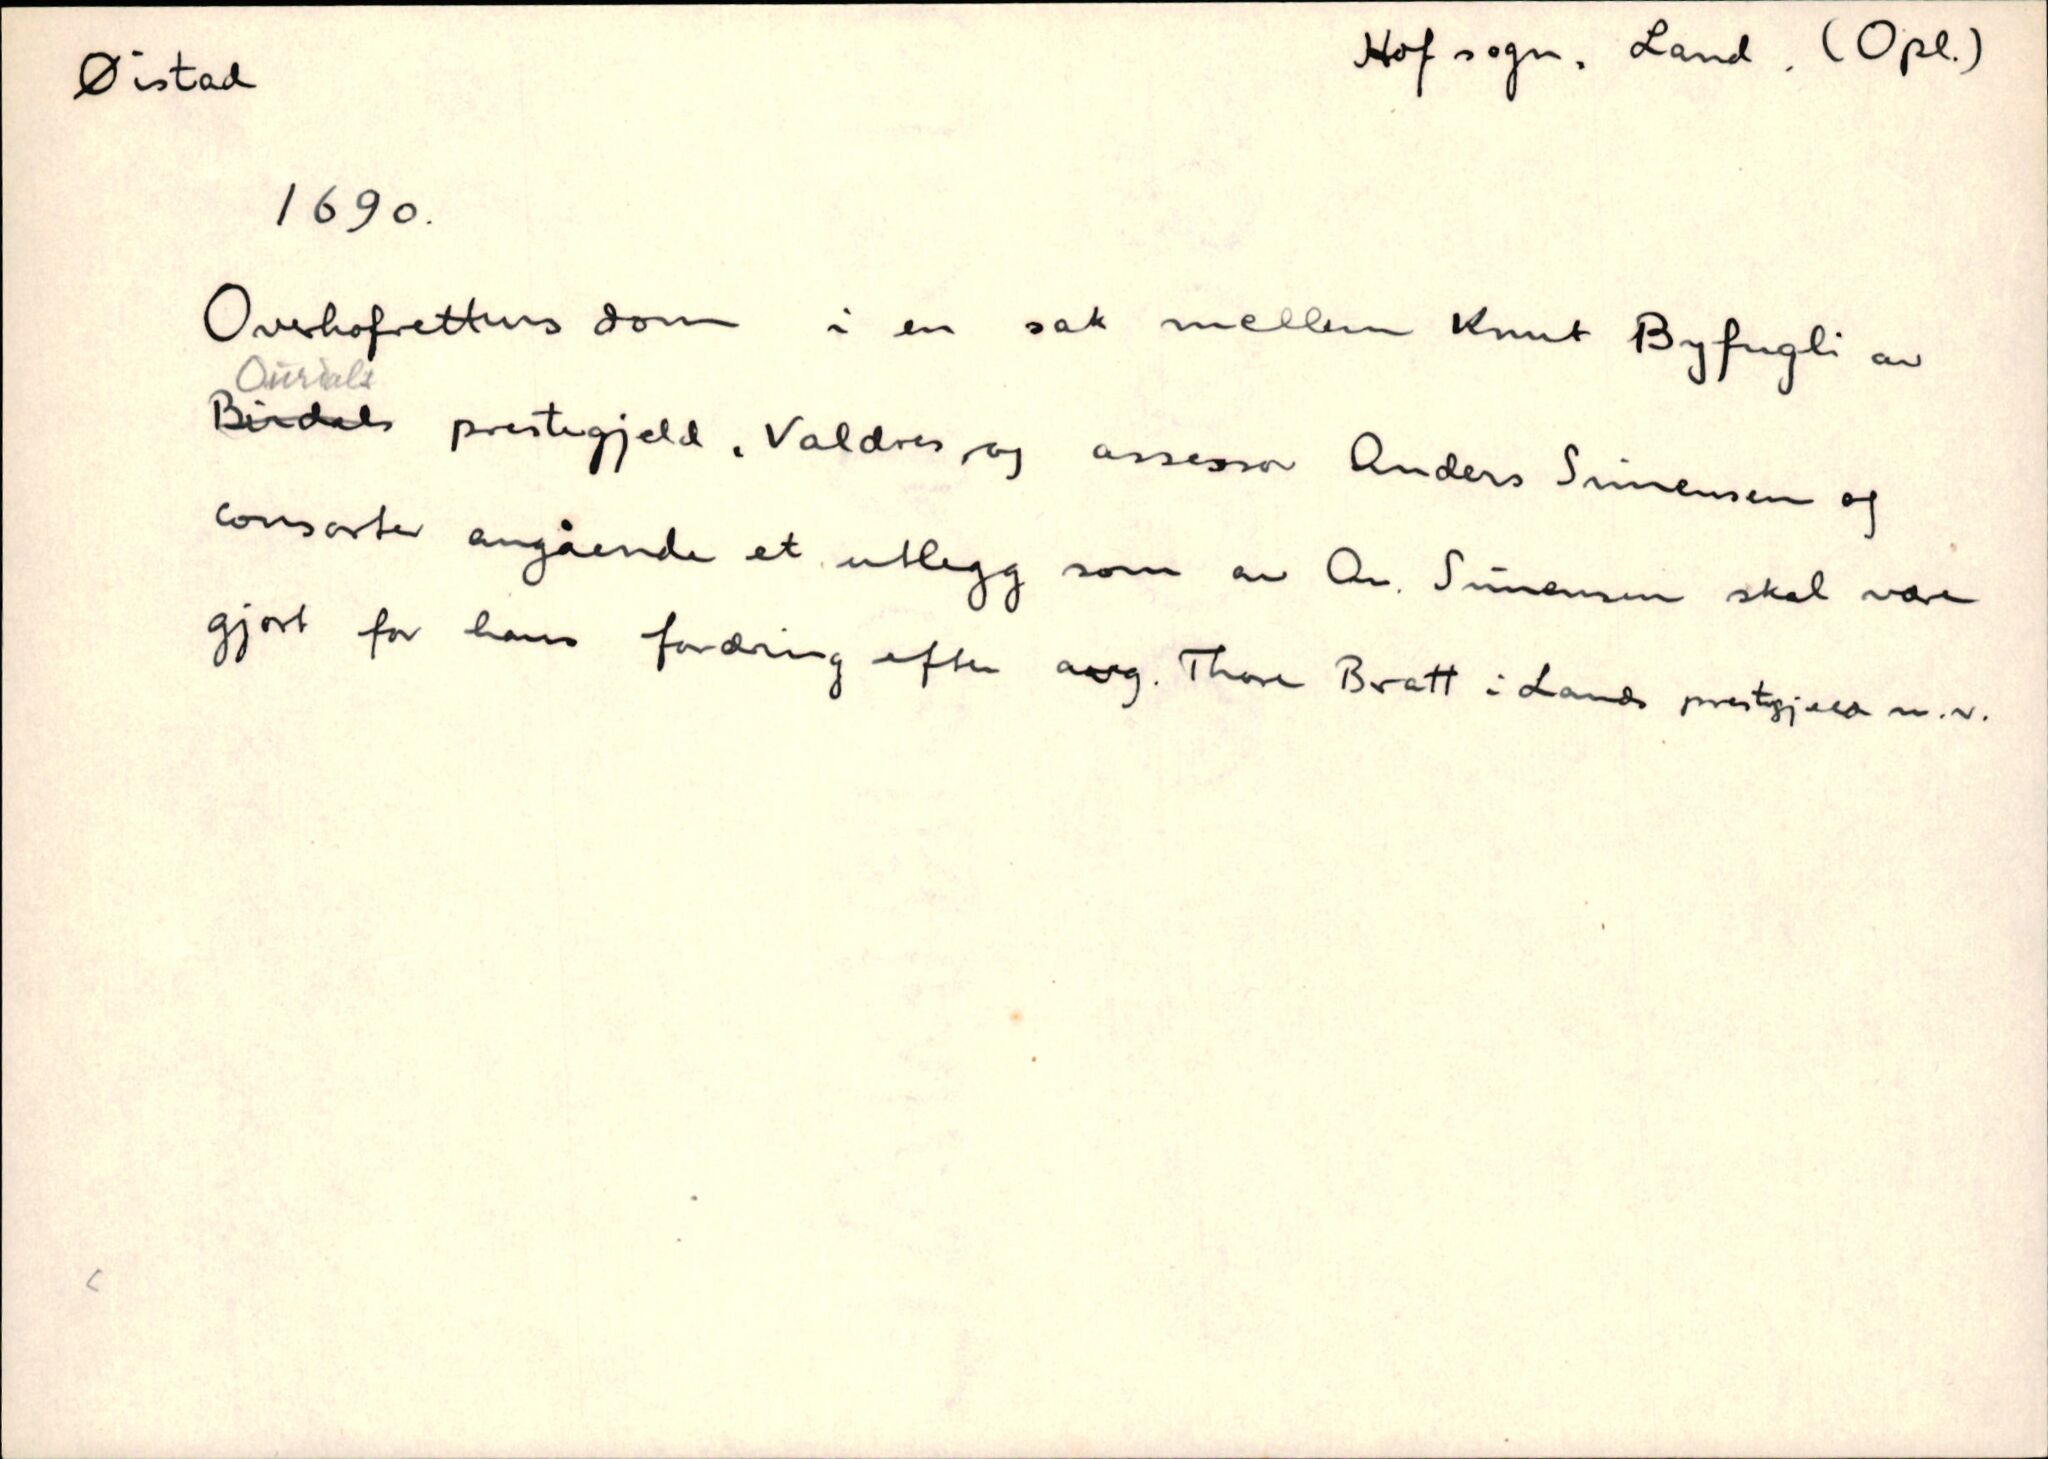 Øistad
Hof sogn, Land. (Opl.)
1690.
Overhofrettens dom i en sak mellem Knut Byfugli av
Ourdals
Birdals prestegjeld, Valdres, og assessor Anders Simensen og
consorter angående et utlegg som av An. Simensen skal være
gjort for hans fordring efter avg. Thore Bratt i Lands prestegjeld m.v.